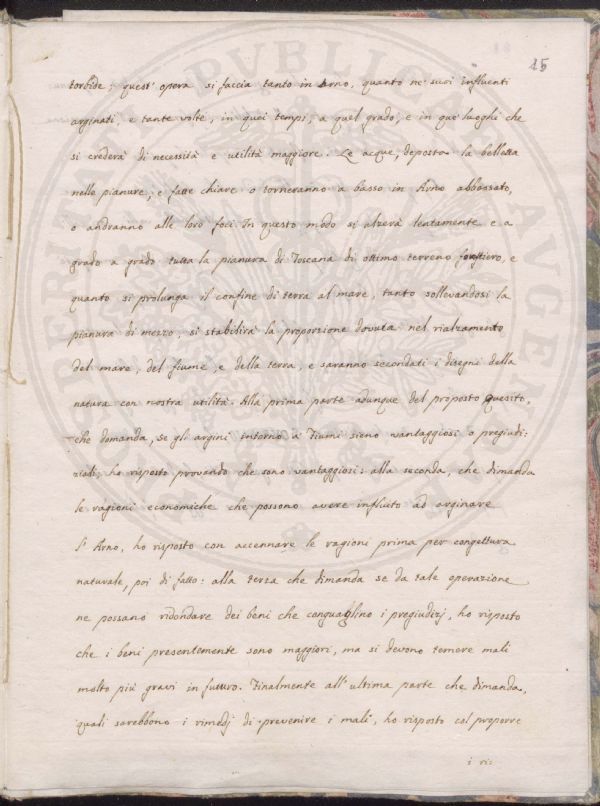 15
torbide; quest' opera si faccia tanto in Arno, quanto ne' suoi influenti
arginati, e tante volte, in quei tempi, a quel grado, e in que' luoghi che
si crederà di necessità e utilità maggiore. Le acque, deposta la belletta
nelle pianure, e fatte chiare o torneranno a basso in Arno abbassato,
o andranno alle loro foci. In questo modo si alzerà lentamente e a
grado a grado tutta la pianura di Toscana di ottimo terreno forestiero, e
quanto si prolunga il confine di terra al mare, tanto sollevandosi la
pianura di mezzo, si stabilirà la proporzione dovuta nel rialzamento
del mare, del fiume, e della terra, e saranno secondati i disegni della
natura con nostra utilità. Alla prima parte adunque del proposto quesito,
che domanda, se gli argini intorno a' Fiumi sieno vantaggiosi o pregiudi:
ziali, ho risposto provando che sono vantaggiosi: alla seconda, che dimanda
le ragioni economiche che possono avere influito ad arginare
l' Arno, ho risposto con accennare le ragioni prima per congettura
naturale, poi di fatto: alla terza che dimanda se da tale operazione
ne possano ridondare dei beni che conguaglino i pregiudizj, ho risposto
che i beni presentemente sono maggiori, ma si devono temere mali
molto più gravi in futuro. Finalmente all' ultima parte che dimanda,
quali sarebbono i rimedj di prevenire i mali, ho risposto col proporre
i ri:
PUBLICA
AUGET